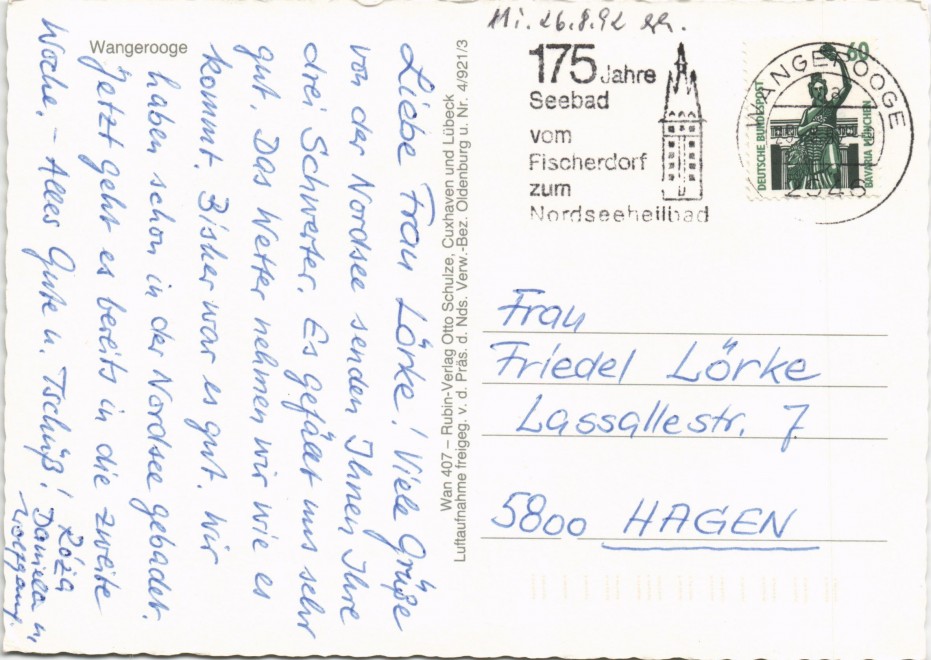 Wangerooge
Liebe Frau Lörke! Viele Grüße
von der Nordsee senden Ihnen Ihre
drei Schwerter. Es gefällt uns sehr
gut. Das Wetter nehmen wir wie es
kommt. Bisher war es gut. Wir
haben schon in der Nordsee gebadet.
Jetzt geht es bereits in die zweite
Woche. – Alles Gute u. Tschüß!
Róża
Daniela u.
Wolfgang.
Wan 407 – Rubin-Verlag Otto Schulze, Cuxhaven und Lübeck
Luftaufnahme freigeg. v. d. Präs. d. Nds. Verw.-Bez. Oldenburg u. Nr. 4/921/3
Mi. 26.8.92
175 Jahre
Seebad
vom
Fischerdorf
zum
Nordseeheilbad
WANGEROOGE
a
60
DEUTSCHE BUNDESPOST
BAVARIA MÜNCHEN
Frau
Friedel Lörke
Lassallestr. 7
5800 HAGEN